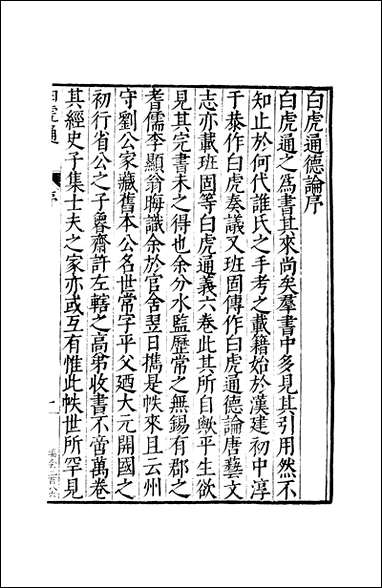 白虎通德論序
白虎通之爲書其來尚矣羣書中多見其引用然不
知止於何代誰氏之手考之載籍始於漢建初中淳
于恭作白虎奏議又班固傳作白虎通德論唐藝文
志亦載班固等白虎通義六卷此其所自歟平生欲
見其完書未之得也余分水監歷常之無錫有郡之
耆儒李顯翁晦識余於官舍翌日擕是帙來且云州
守劉公家藏舊本公名世常字平父廼大元開國之
初行省公之子魯齋許左轄之高弟收書不啻萬卷
其經史子集士夫之家亦或互有惟此帙世所罕見
白虎通 序 一